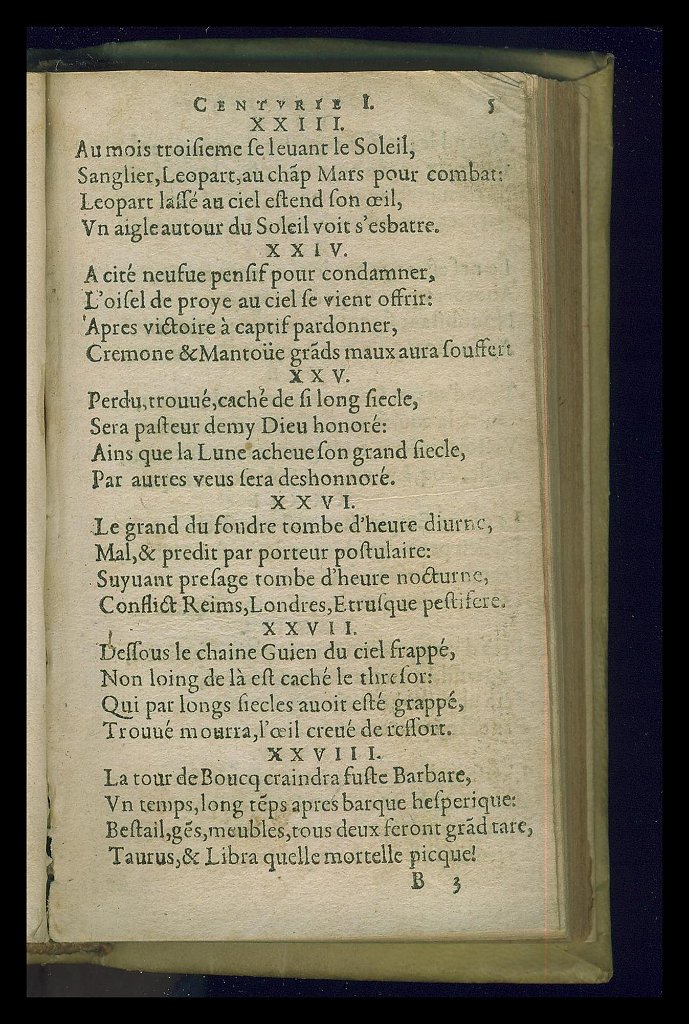 CENTVRIE I. 5
XXIII.
Au mois troiſieme ſe leuant le Soleil,
Sanglier,Leopart,au chãp Mars pour combat:
Leopart laſſé au ciel eſtend ſon œil,
Vn aigle autour du Soleil voit s'esbatre.
XXIV.
A cité neufue penſif pour condamner,
L'oiſel de proye au ciel ſe vient offrir:
Apres victoire à captif pardonner,
Cremone &Mantoüe grãds maux aura ſouffert
XXV.
Perdu,trouué,caché de ſi long ſiecle,
Sera paſteur demy Dieu honoré:
Ains que la Lune acheue ſon grand ſiecle,
Par autres veus ſera deshonnoré.
XXVI.
Le grand du foudre tombe d'heure diurne,
Mal,& predit par porteur poſtulaire:
Suyuant preſage tombe d'heure nocturne,
Conflict Reims,Londres,Etruſque peſtifere.
XXVII.
Deſſous le chaine Guien du ciel frappé,
Non loing de là eſt caché le threſor:
Qui par longs ſiecles auoit eſté grappé,
Trouué mourra,l'œil creué de reſſort.
XXVIII.
La tour de Boucq craindra fuſte Barbare,
Vn temps,long tẽps apres barque heſperique:
Beſtail,gẽs,meubles,tous deux feront grãd tare,
Taurus,& Libra quelle mortelle picque!
B 3